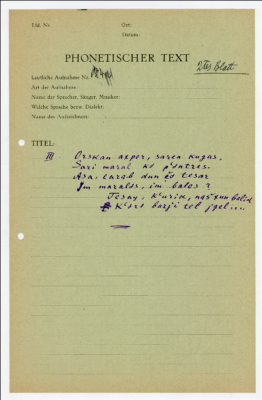 Lfd. Nr.
Ort:
Datum:
PHONETISCHER TEXT
2tes Blatt
Lautliche Aufnahme Nr.:
Art der Aufnahme:
Name der Sprecher, Sänger, Musiker:
Welche Sprache bezw. Dialekt:
Name des Aufzeichners:
TITEL:
III Orskan axper, saren kugas.
Sari maral kə pəntres.
Asa, earab dun čə tesar
Im maraləs, im balas?
Tesay, k'urik,
K'oro barji tel